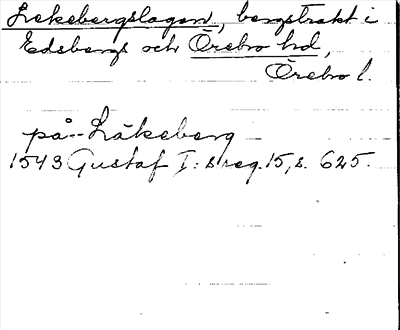 Lekebergslagen, bergstrakt i
Edsbergs och Örebro hd,
Örebro l.
på -- Läkeberg
1543 Gustaf I:s reg. 15, s. 625.